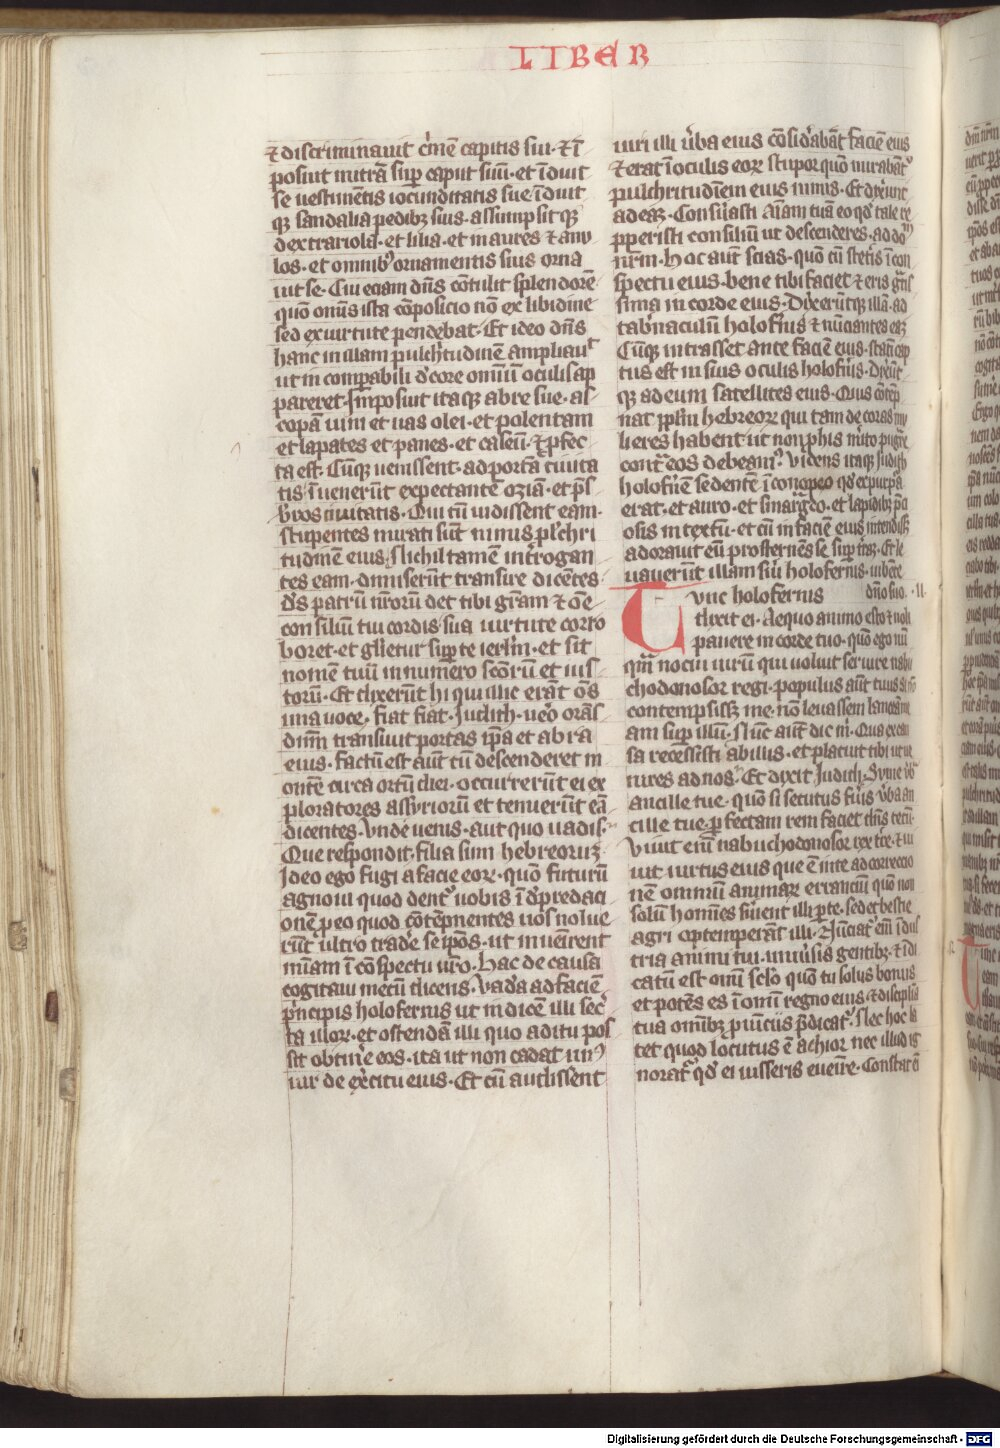 LIBER
⁊ discriminauit c̾inē capitis sui · ⁊ ī
posuit mitrā suꝑ caput suū · et īduit
se uestimētis iocunditatis sue īduit
qꝫ sandalia pedibꝫ suis · assumpsit qꝫ
dextrariola · et lilia · et in aures ⁊ anu
los · et omnibꝰ ornamentis suis orna
uit se · Cui eciam dn̄s cōtulit splendorē
quōn om̄is ista cōposicio nō ex libidine
sed ex uirtute pendebat · Et ideo dn̄s
hanc in illam pulch̾tudinē ampliauᵗ
ut in comꝑabili d̾core omniū oculis ap
pareret · Imposuit itaqꝫ abre sue · as
copā uini et uas olei · et polentam
et lapates et panes · et caseū · ⁊ ꝓfec
ta est · Cūqꝫ uenissent · ad portā ciuita
tis īuenerūt expectantē oziā · et p̄s
b̾ros ciuitatis · Qui cū uidissent eam ·
stupentes mirati sūt nimis pl̾chri
tudinē eius · Nichil tamen in̄trogan
tes eam · dimiserūt transire dicētes ·
d̾s patrū nr̄orū det tibi gr̄am ⁊ oē
consiliū tui cordis sua uirtute corro
boret · et gl̾ietur suꝑ te ierl̄m · et sit
nomē tuū in num̾ro scōrū et ius
torū · Et dixerūt hi qui illic erāt oēs
una uoce · fiat fiat · Judith · ueō orās
dn̄m transiuit portas ip̄a et abra
eius · factū est aūt cū descenderet m
ontē circa ortū diei · occurrerūt ei ex
ploratores assyriorū et tenuerūt eā
dicentes · Vnde uenis · aut quo uadis ·
Que respondit · filia sum hebreoruꝫ
Ideo ego fugi a facie eoꝝ · quōn futurū
agnoui quod dentᵘ uobis ī d̾predaci
onē ꝓeo quod cōtēpnentes uos nolue
rūt ultro trad̾e se ip̄os · ut inuēirent
mīam ī cōspectu ur̄o · Hac de causa
cogitaui mecū dicens · Vadā ad faciē
p̾ncipis holofernis ut indicē illi sec̾
ta illoꝝ · et ostendā illi quo aditu pos
sit obtin̾e eos · ita ut non cadat unꝰ
uir de ex̾citu eius · Et cū audissent
uiri illi u̾ba eius cōsid̾abāt faciē eius
⁊ erat ī oculis eoꝝ stupor quōn mirabātᵘ
pulchritudinem eius nimis · Et dix̾unt
ad eaꝫ · Consu̾asti aīam tuā eo qd̾ tale re
pperisti consiliū ut descenderes · ad doᵐ
nr̄m · hoc aūt scias · quōn cū stet̾is ī con
spectu eius · bene tibi faciet ⁊ eris gr̄tis
sima in corde eius · Dixerūtqꝫ illā · ad
tab̾naculū holof̾nis ⁊ nūciantes eaꝫ
Cūqꝫ intrasset ante faciē eius · stati cap
tus est in suis oculis holof̾nis · Dix̾ūt
qꝫ ad eum satellites eius · Quis cōtēp
nat pp̄lm hebreoꝝ qui tam decoras mu
lieres habent ut non ꝓ his m̾ito pugn̾re
cont̾ eos debeamꝰ · Videns itaqꝫ Judith
holof̾nē sedentē ī conopeo qd̾ ex purpᵃ
erat · et auro · et smaragdo · et lapidibꝫ p̾ci
osis intextū · et cū in faciē eius intendissꝫ
adorauit eū prosternēs se suꝑ t̾rā · Et le
uauerūt illam s̾ui holofernis · iubēte
dn̄o suo · · II ·
Tvnc holofernis
dixit ei · Aequo animo esto ⁊ noli
pauere in corde tuo · quōn ego nū
qm̄ nocui uirū qui uoluit seruire nabu
chodonosor regi · populus aūt tuus si nō
contempsissꝫ me · nō leuassem lanceam
am suꝑ illū · Nūc aūt dic m̾ · Qua ex cau
sa recessisti ab illis · et placuit tibi ut ue
nires ad nos · Et dixit Judith · Sume u̾b
ancille tue · quōn si secutus fu̾is u̾ba an
cille tue · ꝑfectam rem faciet dn̄s tecū ·
Viuit eiī nabuchodonosor rex t̾re · ⁊ ui
uit uirtus eius que ē in te ad correccio
nē omniū animaꝝ errancium quōn non
solū homīes s̾uient illi ꝑ te · sed et bestie
agri optemperāt illi · Nūciatᵘ em̄ īdus
tria animi tui · uniu̾sis gentibꝫ · ⁊ īdi
catū est om̄i sclo quōn tu solus bonus
et potēs es ī om̄i regno eius · ⁊ disciplīa
tua om̄ibꝫ ꝓuīciis p̄dicatᵘ · Nec hoc la
tet quod locutus ē achior nec illud ig
noratᵘ qd̾ ei iusseris eueīre · Constat eī
Digitalisierung gefördert durch die Deutsche Forschungsgemeinschaft - DFG